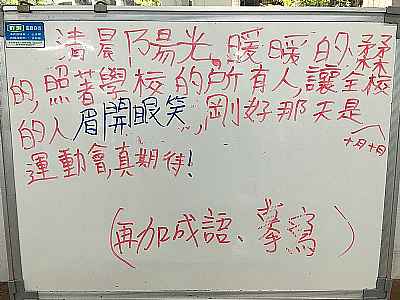 清晨陽光,暖暖的、柔柔
的,照著學校的所有人,讓全校
的人眉開眼笑,剛好那天是
十月十日
運動會,真期待!
(再加成語、摹寫)